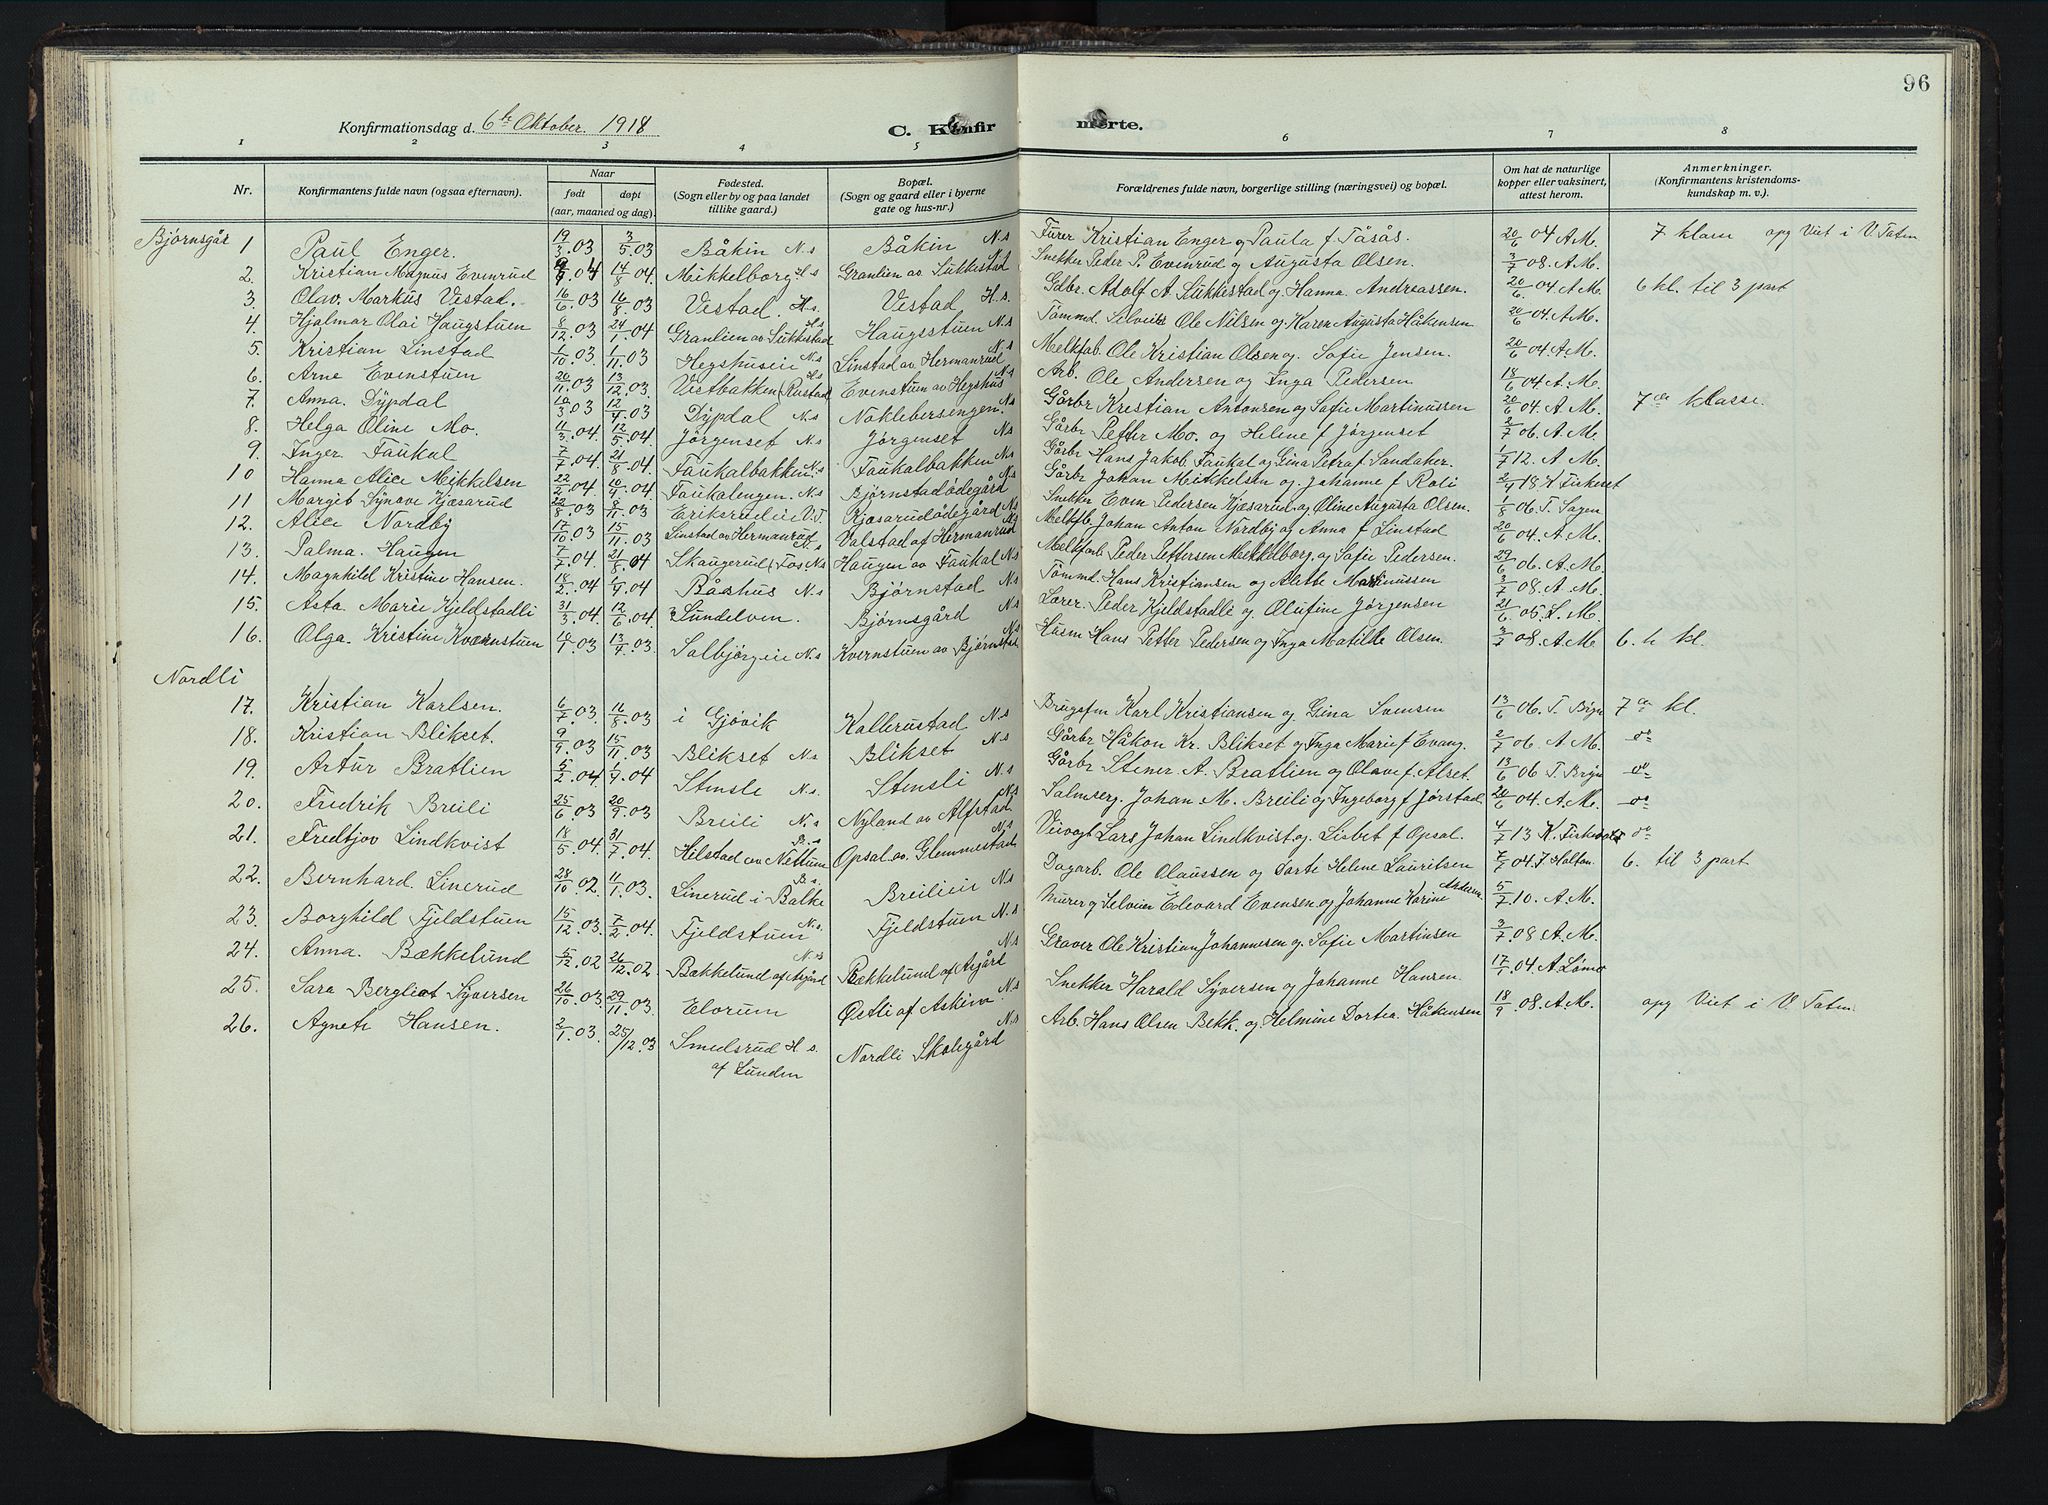 96
Konfirmationsdag d. 6te Oktober. 1918
C. Konfirmerte.
1 2 3 4 5 6 7 8
Nr.
Konfirmantens fulde navn (ogsaa efternavn).
Naar
født døpt
(aar, maaned og dag).
Fødested.
(Sogn eller by og paa landet
tillike gaard.)
Bopæl.
(Sogn og gaard eller i byerne
gate og hus-nr.)
Forældrenes fulde navn, borgerlige stilling (næringsvei) og bopæl.
Om hat de naturlige
kopper eller vaksinert,
attest herom.
Anmerkninger.
(Konfirmantens kristendoms-
kundskap m. v.).
Bjørnsgår
1 Paul Enger. 19/3 03 3/5 03 Båkin N.s Båkin N.s Furer Kristian Enger og Paula f. Tåsås. 20/6 04 A.M. 7 klasse opg Viet i V. Toten
2. Kristian Magnus Evenrud 04 14/8 04 Mikkelborg H.s Granlien av Sukkestad N.s Snekker Peder P. Evenrud og Augusta Olsen. 3/7 08. A.M.
3. Olav. Markus Vestad. 16/6 03 16/8 03 Vestad. H.s Vestad H.s. Gdbr. Adolf A. Sukkestad og Hanna Andreassen. 20/6 04 A.M. 6 kl. til 3 part
4. Hjalmar Olai Haugstuen 8/12 03 24/1 04 Granlien av Sukkestad H.s Haugsstuen N.s Tømmd. Selveier Ole Nilsen og Karen Augusta Håkensen 20/6 04. A.M.
5. Kristian Linstad 1/10 03 1/11 03 Hegshuseie N.s Linstad av Hermanrud N.s Melkfab. Ole Kristian Olsen og Sofie Jensen. 20/6 04 A.M.
6. Arne Evenstuen 20/11 03 13/12 03. Vestbakken (Rustad) Evenstuen av Hegshus N.s Arb. Ole Andersen og Inga Pedersen 18/6 04 A.M.
7. Anna. Dypdal 10/3 03 12/4 03 Dypdal N.s Noklebersengen N.s Gårbr Kristian Antonsen og Sofie Martinussen 20/6 04. A.M. 7de klasse.
8. Helga Oline Mo. 11/3 04. 12/5 04 Jørgenset N.s Jørgenset N.s Gårbr Petter Mo. og Helene f Jørgenset 2/7 06. A.M.
9. Inger Faukal 7/7 04. 21/8 04. Faukalbakken N.s Faukalbakken N.s Gårbr Hans Jakob Faukal og Gina Petra f Sandaker. 1/7 12. A.M.
10 Hanna Alice Mikkelsen 22/2 04 10/4 04. Faukalengen. N.s Bjørnstadødegård Gårbr Johan Mikkelsen og Johanne f Roli 2/4 18 K Fiskeset
11 Margit Synøve Kjæsarud 22/8 03 8/11 03 Erikerudeie V.T. Kjæsarudødegård N.s Snekker Even Pedersen Kjæsarud og Oline Augusta Olsen. 1/8 06. T. Sagen
12. Alice Nordby 17/10 03 15/11 03 Linstad av Hermanrud N.s Valstad af Hermanrud N.s Melkfb. Johan Anton Nordby og Anna f Linstad 20/6 04. A.M.
13. Palma. Haugen 7/7 04. 21/8 04 Skaugerud (Fos N.s Haugen av Faukal N.s Melkfarb Peder Pettersen Mekkelborg. og Sofie Pedersen. 29/6 06. A.M.
14. Magnhild Kristine Hansen. 18/2 04 1/4 04 Båshus N.s Bjørnstad N.s Tømmd. Hans Kristiansen og Alette Martinussen 3/7 08. A.M.
15. Asta Marie Kjeldstadli 31/3 04. 12/6 04 Sundelven. Bjørnsgård N.s Lærer. Peder Kjeldstadli og Olufine Jørgensen 21/6 05. S.M.
16. Olga. Kristine Kværnstuen 10/1 03 13/4 03. Salbjørgeie N.s Kvernstuen av Bjørnstad N.s Husm Hans Petter Pedersen og Inga Matilde Olsen. 3/7 08. A.M. 6. kl.
Nordli
17. Kristian Karlsen. 6/7 03. 16/8 03 i Gjøvik Kallerustad N.s Brugsfm Karl Kristiansen og Gina Svensen 13/6 06. T. Bryn 7de kl.
18. Kristian Blikset. 9/9 03 15/11 03 Blikset N.s Blikset N.s Gårbr Håkon Kr. Blikset og Inga Marie f Evang. 2/7 06. A.M. do
19. Artur Bratlien 5/2 04. 1/4 04 Stensle N.s Stensli N.s Gårbr Stener A. Bratlien og Olave f. Alset. 13/6 06 T. Bryn do
20. Fredrik Breili 25/6 03 20/9 03 Breili N.s Nyland av Alfstad N.s Salmserg. Johan M. Breili og Ingeborg f Jørstad. 20/6 04. A.M. do
21. Fredtjov Lindkvist 18/5 04. 31/7 04. Hilstad av Nettum B.s Opsal av Glemmestad N.s Veivogt Lars Johan Lindkvist og Lisbet f Opsal. 4/7 13 K. Fiskvolt do
22. Bernhard. Linerud 28/10 02. 11/1 03. Linerud i Balke B.s. Breilieie N.s Dagarb. Ole Olaussen og Dorte Helene Lauritsen 7/7 04. J Holton 6. til 3 part
23. Borghild Fjeldstuen 15/12 03. 7/2 04. Fjeldstuen N.s. Fjeldstuen N.s Murer og Selveier Edevard Evensen og Johanne Karine Andersen 5/7 10. A.M.
24. Anna. Bækkelund 5/12 02 26/12 02 Bækkelund af Asgård N.s Bækkelund af Asgård N.s Graver Ole Kristian Johannesen og Sofie Martinsen 3/7 08 A.M.
25. Sara Bergliot Syversen 26/10 03. 29/11 03. Elorum Østli af Askim N.s Snekker Harald Syversen og Johanne Hansen. 17/1 04. A. Lømo
26. Agnete Hansen. 2/1 03. 25/12 03 Smedsrud H.s. af Lunden Nordli Skolegård N.s Arb. Hans Olsen Bekk. og Helmine Dortea Håkensen 18/9 08. A.M. opg Viet i V Toten